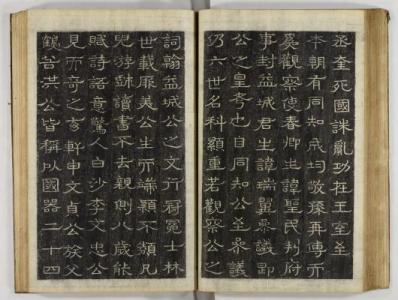 丞奎死國誅亂功在王室至
本朝有同知成均敬孫再傳而
爲觀察使春卿生諱聖民判府
事封益城君生諱瑞翼參議卽
公之皇考也自同知公至參議
仍六世名科顯重若觀察公之
詞翰益城公之文行冠冕士林
世載厥美公生而端穎不類凡
兒游戱讀書不去親側八歲能
賦詩語意驚人白沙李文忠公
見而奇之玄軒申文貞公族父
鶴谷洪公皆稱以國器二十四